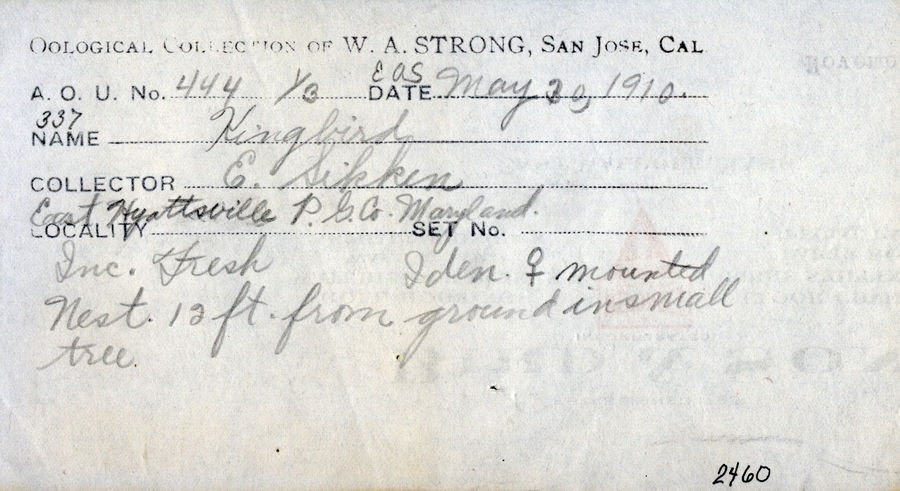 OOLOGICAL COLLECTION OF W. A. STRONG, SAN JOSE, CAL
EAS
A. O. U. NO. 444 1/3 DATE May 20, 1910.
337
NAME Kingbird
COLLECTOR E. Sikken
East Hyattsville P. G. Co. Maryland.
LOCALITY SET NO.
Inc. Fresh Iden. ♀ mounted
Nest. 12 ft. from ground in small
tree
2460